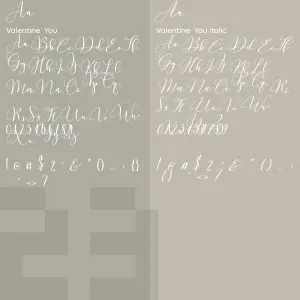 Aa
Valentine You
Aa Bb Cc Dd Ee Ff
Gg Hh Ii Jj Kk Ll
Mm Nn Oo Pp Qq
Rr Ss Tt Uu Vv Ww
0123456789
Xx Yy Zz
Aa
Valentine You Italic
Aa Bb Cc Dd Ee Ff
Gg Hh Ii Jj Kk Ll
Mm Nn Oo Pp Qq Rr
Ss Tt Uu Vv Ww
0123456789